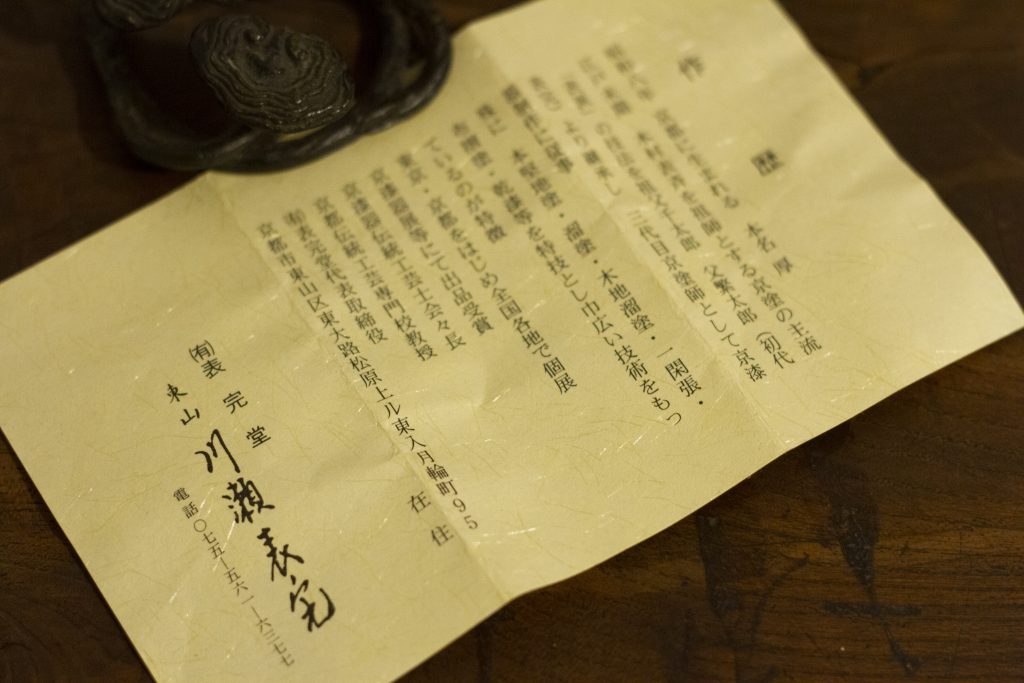 作歴
昭和八年 京都に生まれる 本名 厚
江戸末期 木村表斉を祖師とする京塗の主流
「表派」の技法を祖父 太郎 父繁太郎(初代
表完)より継承し 三代目京塗師として京漆
器制作に従事
特に 本堅地塗・溜塗・木地溜塗・一閑張・
塗・乾漆等を特技とし巾広い技術をもっ
ているのが特徴
東京・京都をはじめ全国各地で個展
京漆器展等にて出品受賞
京漆器伝統工芸士会々長
京都伝統工芸専門校教授
㈲表完堂代表取締役
京都市東山区東大路松原上ル東入月輪町95
在住
㈲表完堂
東山 川瀬表完
電話〇七五ー五六一ー六三七七